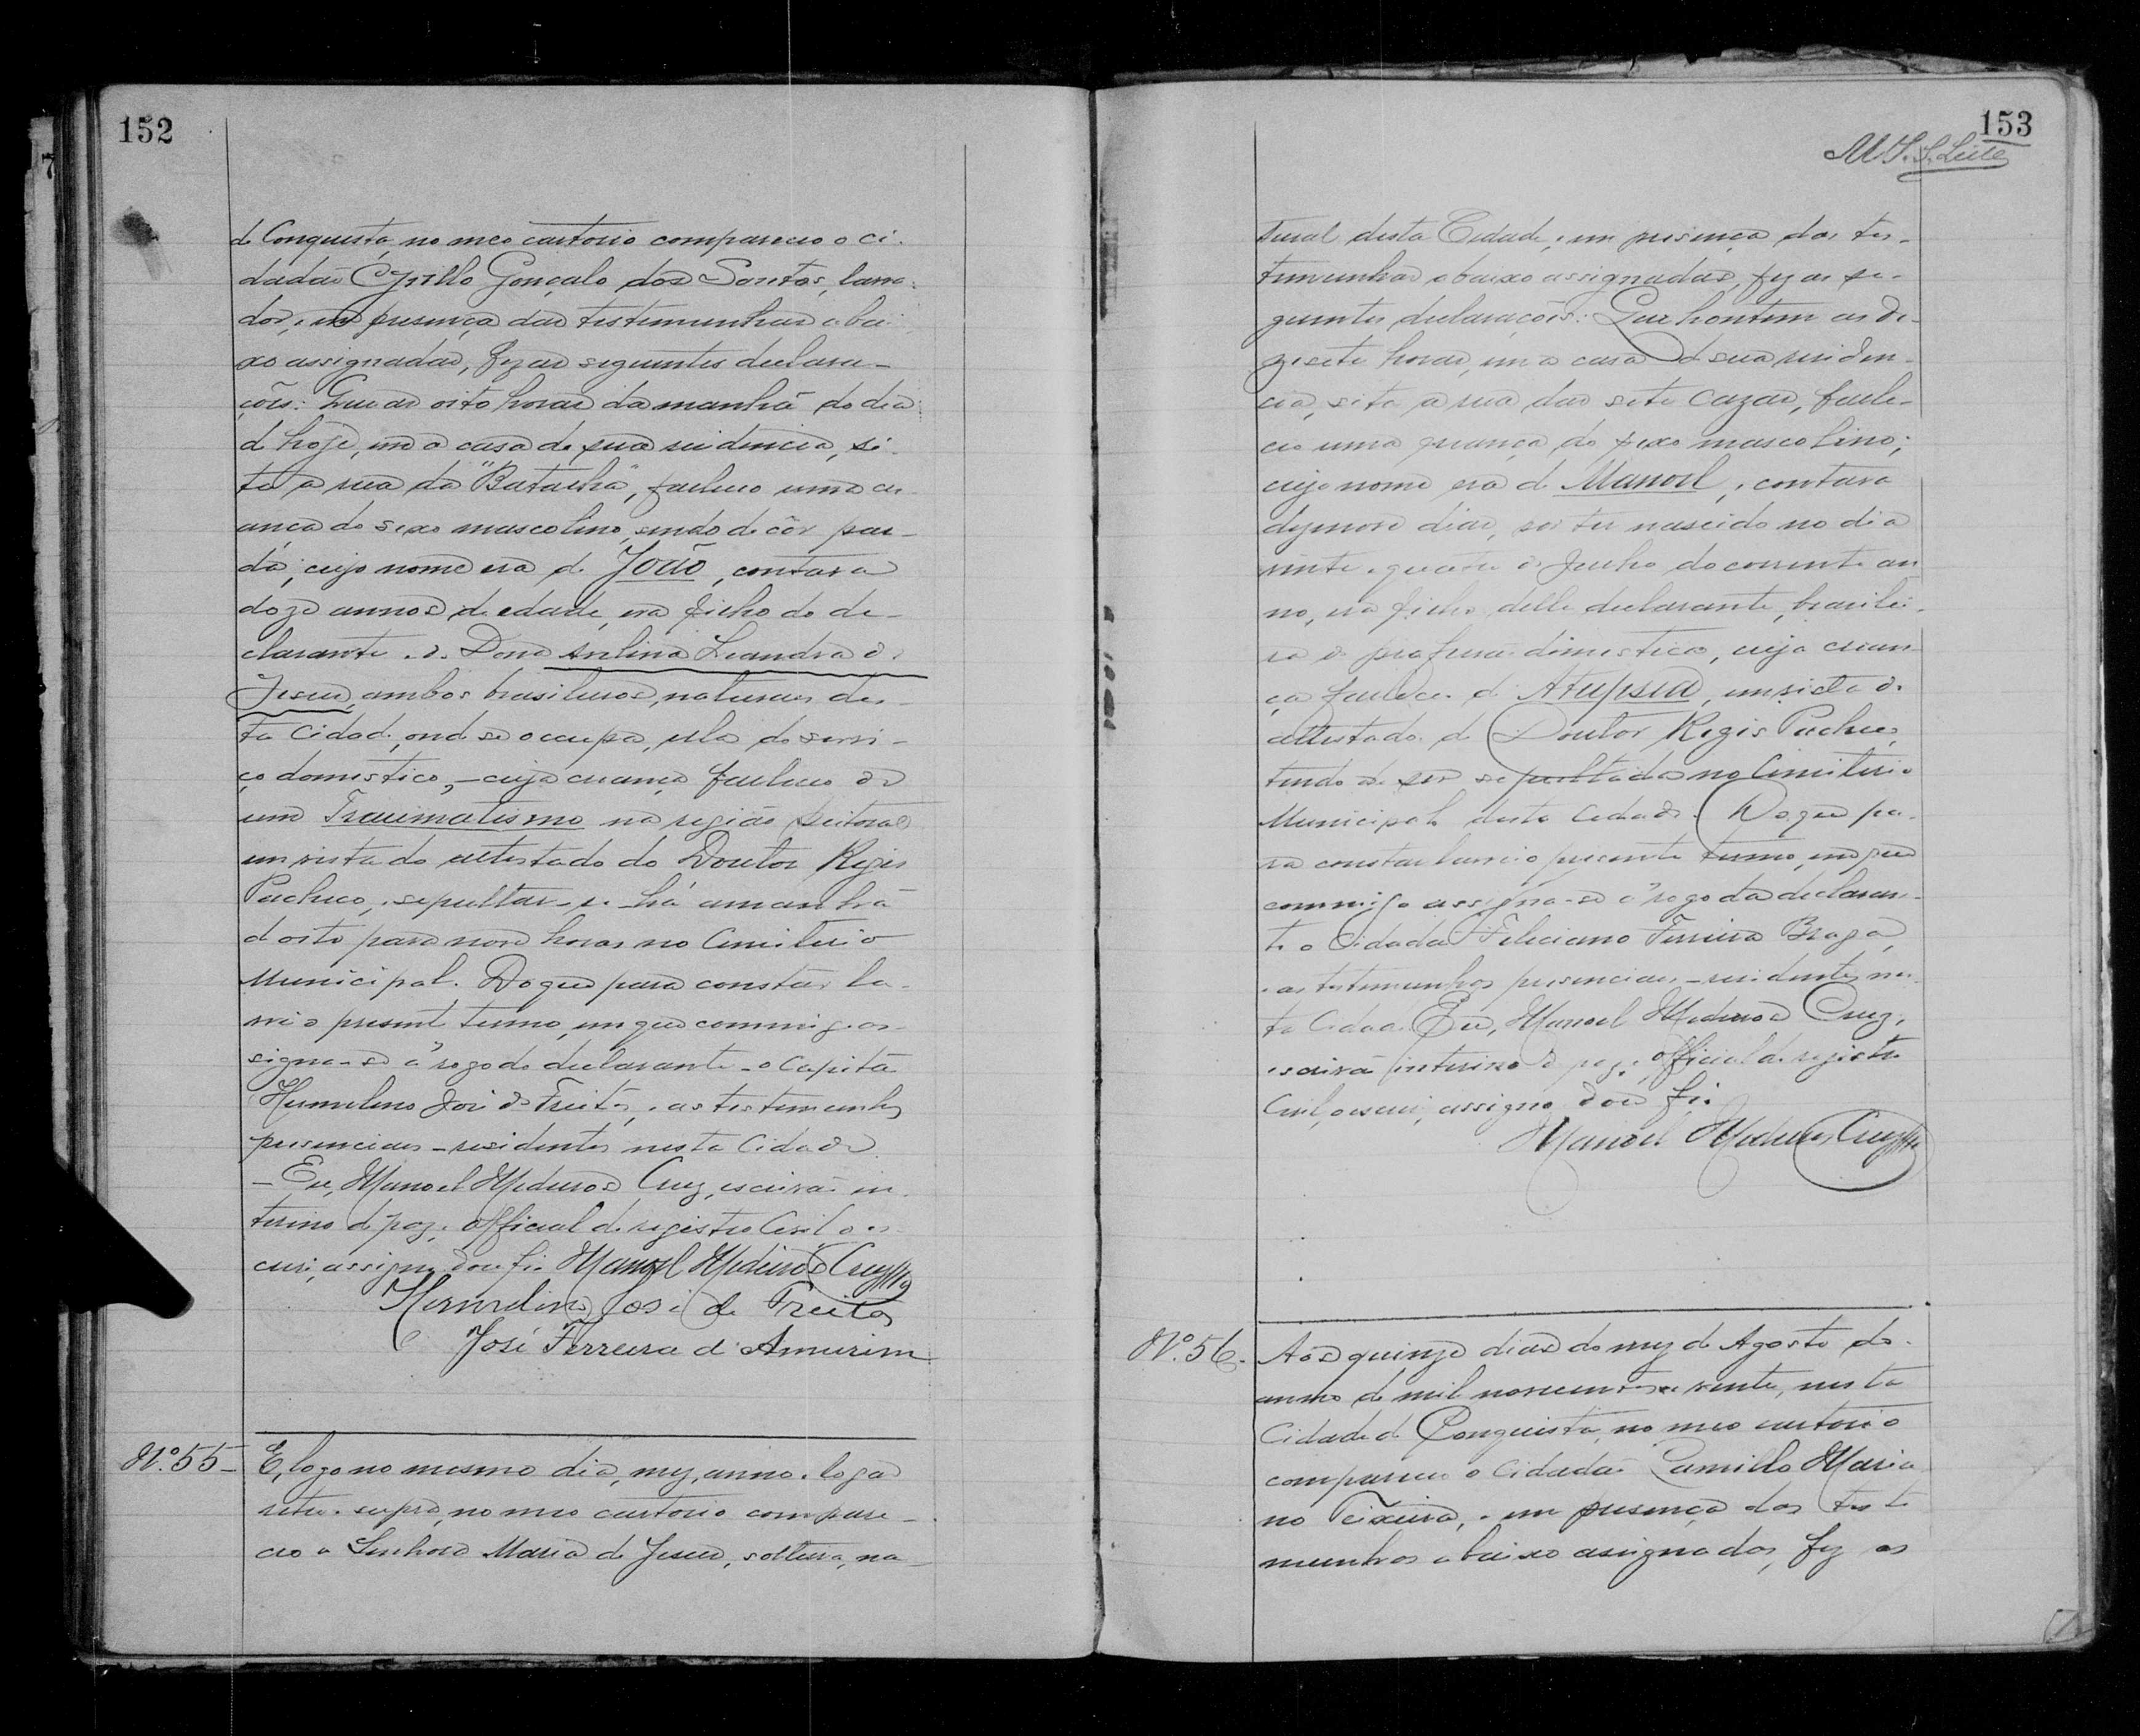 152
de Conquista, no meo cartorio compareceo o ci-
dadão Cyrillo Gonçalo dos Santos, lavra-
dor, e em presença das testemunhas abai-
xo assignadas, fez as seguintes declara-
ções: Que as oito horas da manhã do dia
de hoje, em a casa de sua residencia, si-
ta a rua da "Batalha", falleceo uma cri-
ança do sexo mascolino, sendo de côr par-
da, cujo nome era de João, contava
doze annos de edade, era filho do de-
clarante e de Dona Avelina Leandra de
Jesus, ambos brasileiros, naturaes des-
ta Cidade, onde se occupa, ella do servi-
ço domestico, - cuja criança falleceo de
um Traumatismo na região peitoral
em vista do attestado do Doutor Regis
Pacheco, e sepultar-se-há amanhã
de oito para nove horas no Cemiterio
Municipal. Do que para constar la-
vrei o presente termo, em que commigo as-
signa-se á rogo do declarante - o Capitão
Hermelino José de Freitas, e as testemunhas
presenciaes - residentes nesta Cidade.
- Eu, Manoel Medeiros Cruz, escrivão in-
terino de paz, e official do registro Civil o es-
crevi, assigno, dou fé. Manoel Medeiros Cruz
Hermelino José de Freitas
José Ferreira de Amurim
Nº. 55- E, logo no mesmo dia, mez, anno e logar
retro e supra, no meo cartorio compare-
ceo a Senhora Maria de Jesus, solteira, na-
153
M S. S. Leite
tural desta Cidade, e em presença das tes-
temunhas abaixo assignadas, fez as se-
guintes declarações: Que hontem as de-
zesete horas, em a casa de sua residen-
cia, sita a rua das sete cazas, falle-
ceo uma criança do sexo mascolino,
cujo nome era de Manoel, e contava
dezenove dias, por ter nascido no dia
vinte e quatro de Julho do corrente an
no, era filho della declarante, brasilei-
ra de profissão domestica, cuja crian
ça falleceo de Atrepsia, em vista do
attestado do Doutor Regis Pacheco,
tendo de ser sepultada no Cemiterio
Municipal desta Cidade. Do que pa-
ra constar lavrei o presente termo, em que
commigo assigna-se á rogo da declaran-
te o Cidadão Feliciano Ferreira Braga,
e as testemunhas presenciaes - residentes nes-
ta Cidade. Eu, Manoel Medeiros Cruz,
escrivão interino de paz, e official do registro
Civil, o escrevi, assigno, dou fé.
Manoel Medeiros Cruz
Nº. 56- Aos quinze dias do mez de Agosto do
anno de mil novecentos e vinte, nesta
Cidade de Conquista, no meo cartorio
compareceo o Cidadão Camillo Maria
no Teixeira, e em presença das teste
munhas abaixo assignadas, fez as